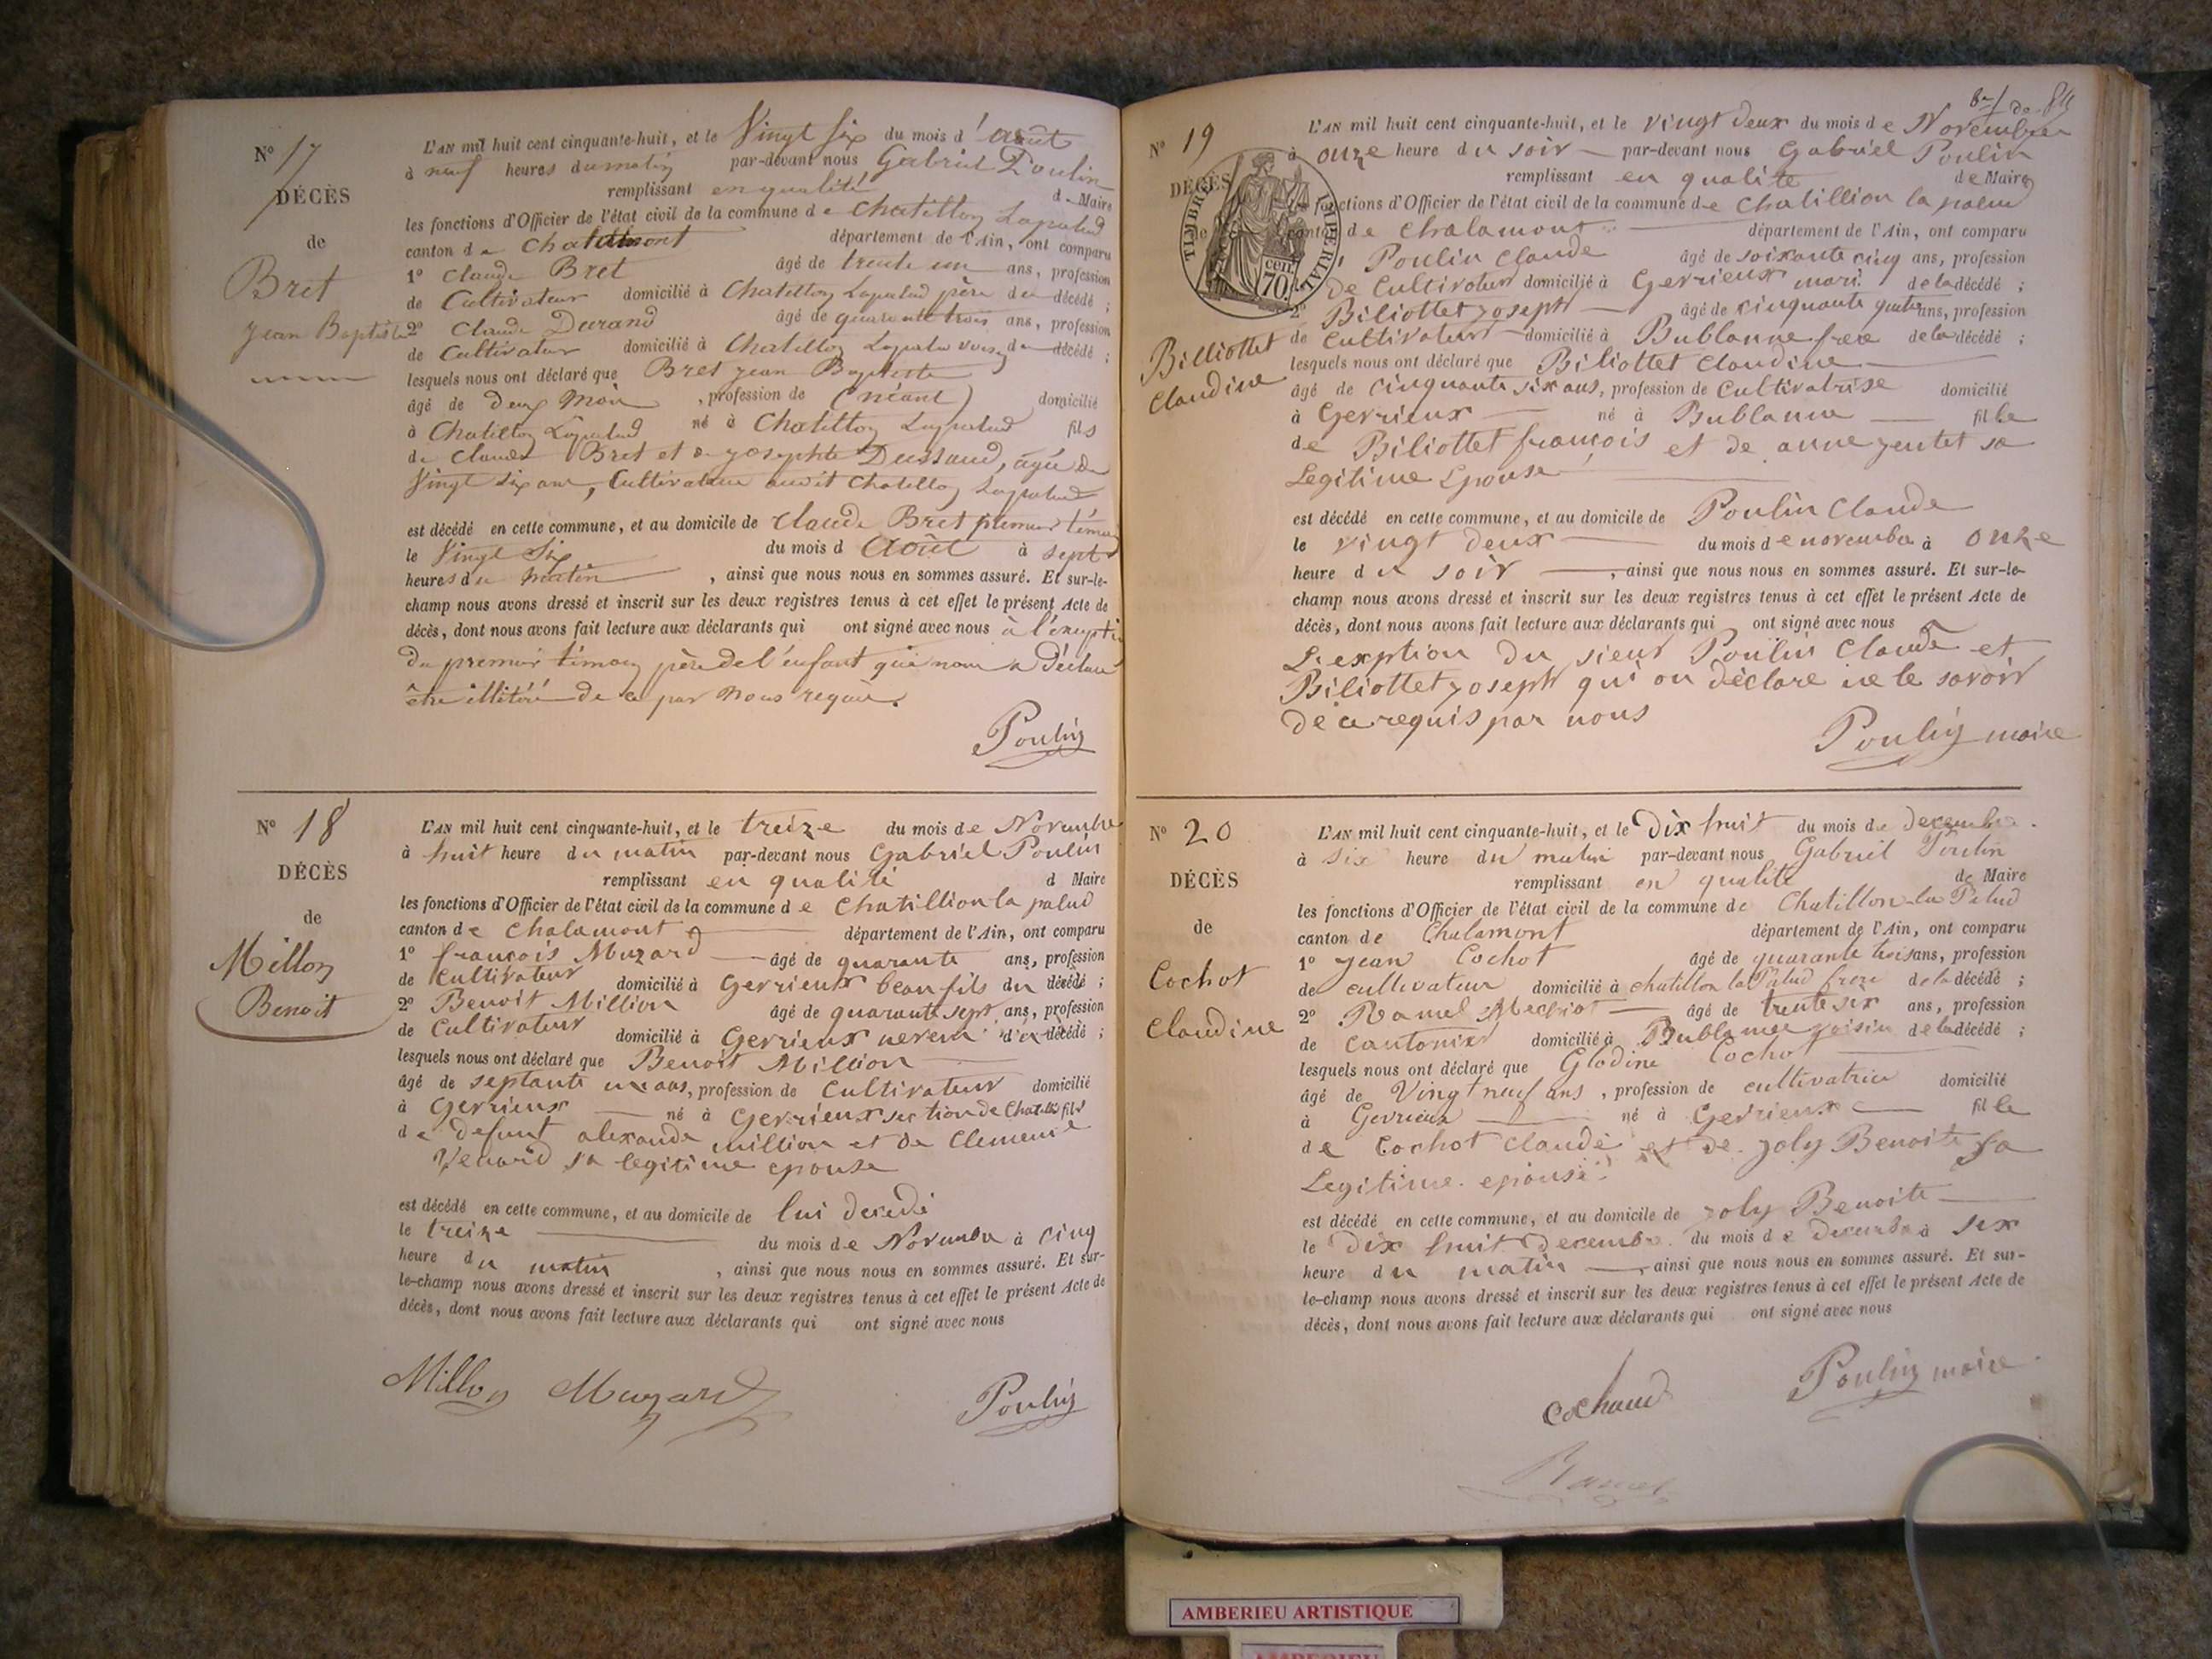 N° 17
DÉCÈS
de
Bret
Jean Baptiste
L'AN mil huit cent cinquante-huit, et le Vingt Six du mois d'août
à neuf heures du matin par-devant nous Gabriel Poulin
remplissant en qualité de Maire
les fonctions d'Officier de l'état civil de la commune de Chatillon Lapalud
canton de Chalamont département de l'Ain, ont comparu
1° Claude Bret âgé de trente un ans, profession
de Cultivateur domicilié à Chatillon Lapalud père du décédé ;
2° Claude Durand âgé de quarante trois ans, profession
de Cultivateur domicilié à Chatillon Lapalud voisin du décédé ;
lesquels nous ont déclaré que Bret Jean Baptiste
âgé de deux mois, profession de (néant) domicilié
à Chatillon Lapalud né à Chatillon Lapalud fils
de Claude Bret et de Josephte Dussaud, âgée de
Vingt six ans, Cultivateur audit Chatillon Lapalud
est décédé en cette commune, et au domicile de Claude Bret premier témoin
le Vingt Six du mois d Août à sept
heures du matin, ainsi que nous nous en sommes assuré. Et sur-le-
champ nous avons dressé et inscrit sur les deux registres tenus à cet effet le présent Acte de
décès, dont nous avons fait lecture aux déclarants qui ont signé avec nous à l'exeptio
du premier témoin père de l'enfant qui nous a déclaré
être illitéré de ce par nous requis.
Poulin
N° 18
DÉCÈS
de
Millon
Benoit
L'AN mil huit cent cinquante-huit, et le treize du mois de Novembre
à huit heure du matin par-devant nous Gabriel Poulin
remplissant en qualité d Maire
les fonctions d'Officier de l'état civil de la commune de Chatillion la palud
canton de Chalamont département de l'Ain, ont comparu
1° françois Muzard âgé de quarante ans, profession
de Cultivateur domicilié à Gerrieux beau fils du décédé ;
2° Benoit Million âgé de quarante sept ans, profession
de Cultivateur domicilié à Gerrieux neveu du décédé ;
lesquels nous ont déclaré que Benoit Million
âgé de septante un ans, profession de Cultivateur domicilié
à Gerrieux né à Gerrieux section de Chatillo fils
de defunt alexandre million et de Clemence
Venard sa legitime epouse
est décédé en cette commune, et au domicile de lui decedé
le treize du mois de Novembre à cinq
heure du matin, ainsi que nous nous en sommes assuré. Et sur-
le-champ nous avons dressé et inscrit sur les deux registres tenus à cet effet le présent Acte de
décès, dont nous avons fait lecture aux déclarants qui ont signé avec nous
Millon Muzard Poulin
N° 19
DÉCÈS
de
Billiottet
Claudine
TIMBRE IMPÉRIAL
cen. 70.
L'AN mil huit cent cinquante-huit, et le vingt deux du mois de Novembre
à onze heure du soir par-devant nous Gabriel Poulin
remplissant en qualite de Maire
les fonctions d'Officier de l'état civil de la commune de Chatillion la palud
canton de Chalamont département de l'Ain, ont comparu
Poulin Claude âgé de soixante cinq ans, profession
de Cultivateur domicilié à Gerrieux mari de la décédé ;
2° Biliottet joseph âgé de cinquante quatre ans, profession
de Cultivateur domicilié à Bublanne frere de la décédé ;
lesquels nous ont déclaré que Biliottet Claudine
âgé de cinquante six ans, profession de Cultivatrise domicilié
à Gerrieux né à Bublanne fille
de Biliottet françois et de anne jentet sa
Legitime Epouse
est décédé en cette commune, et au domicile de Poulin Claude
le vingt deux du mois de novembre à onze
heure du soir, ainsi que nous nous en sommes assuré. Et sur-le-
champ nous avons dressé et inscrit sur les deux registres tenus à cet effet le présent Acte de
décès, dont nous avons fait lecture aux déclarants qui ont signé avec nous
L'exption du sieur Poulin Claude et
Biliottet joseph qui on déclare ne le savoir
de ce requis par nous
Poulin maire
N° 20
DÉCÈS
de
Cochot
Claudine
L'AN mil huit cent cinquante-huit, et le Dix huit du mois de decembre
à six heure du matin par-devant nous Gabriel Poulin
remplissant en qualité de Maire
les fonctions d'Officier de l'état civil de la commune de Chatillon la Palud
canton de Chalamont département de l'Ain, ont comparu
1° Jean Cochot âgé de quarante trois ans, profession
de cultivateur domicilié à chatillon la Palud frere de la décédé ;
2° Ramel âgé de trente six ans, profession
de Cantonier domicilié à Bublanne voisin de la décédé ;
lesquels nous ont déclaré que Glodine Cochot
âgé de Vingt neuf ans, profession de cultivatrice domicilié
à Gerrieux né à Gerrieux fille
de Cochot Claude et de joly Benoite sa
Legitime epouse
est décédé en cette commune, et au domicile de joly Benoite
le Dix huit Decembre du mois de decembre à six
heure du matin, ainsi que nous nous en sommes assuré. Et sur-
le-champ nous avons dressé et inscrit sur les deux registres tenus à cet effet le présent Acte de
décès, dont nous avons fait lecture aux déclarants qui ont signé avec nous
Cochaud Poulin maire
Ramel
AMBERIEU ARTISTIQUE
AMBERIEU